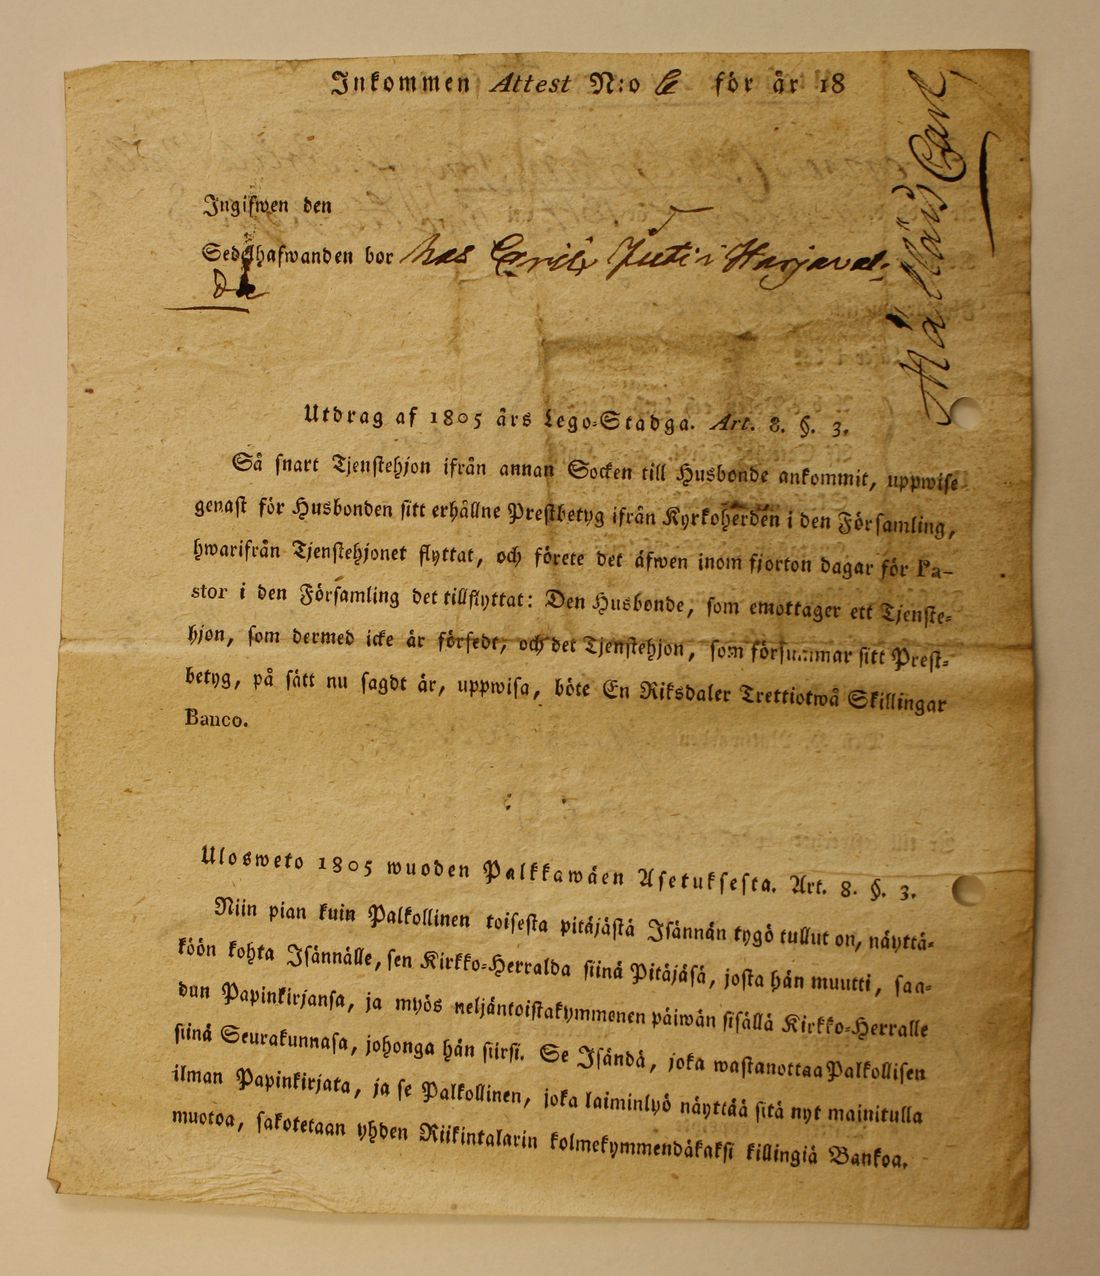 Inkommen Attest N:o 6 för år 18
Ingifwen den
Sedelhafwanden bor hos Eric Juti i Harjaval.
Utdrag af 1805 års Lego-Stadga. Art. 8. §. 3.
Så snart Tjenstehjon ifrån annan Socken till Husbonde ankommit, uppwise
genast för Husbonden sitt erhållne Prestbetyg ifrån Kyrkoherden i den Församling,
hwarifrån Tjenstehjonet flyttat, och förete det äfwen inom fjorton dagar för Pa-
stor i den Församling det tillflyttat: Den Husbonde, som emottager ett Tjenste-
hjon, som dermed icke är försedt, och det Tjenstehjon, som försummar sitt Prest-
betyg, på sätt nu sagdt är, uppwisa, böte En Riksdaler Trettiotwå Skillingar
Banco.
Ulosweto 1805 wuoden Palkkawäen Asetuksesta. Art. 8. §. 3.
Niin pian kuin Palkollinen toisesta pitäjästä Isännän tygö tullut on, näyttä-
köön kohta Isännälle, sen Kirkko-Herralda siinä Pitäjäsä, josta hän muutti, saa-
dun Papinkirjansa, ja myös neljäntoistakymmenen päiwän sisällä Kirkko-Herralle
siinä Seurakunnasa, johonga hän siirsi. Se Isändä, joka wastanottaa Palkollisen
ilman Papinkirjata, ja se Palkollinen, joka laiminlyö näyttää sitä nyt mainitulla
muotoa, sakotetaan yhden Riikintalarin kolmekymmendäkaksi killingiä Bankoa.